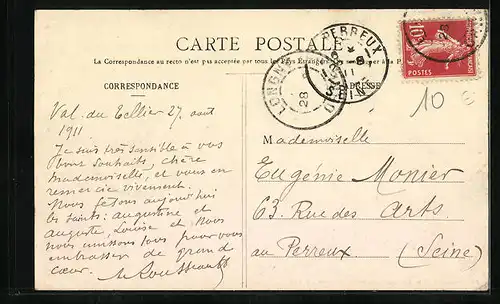 CARTE POSTALE
La Correspondance au recto n'est pas acceptée par tous les Pays Étrangers
CORRESPONDANCE
ADRESSE
PERREUX
LONGN
28
28
10
POSTES
10
Val du Tellier 27 août
1911
Je suis très sensible à vos
bons souhaits, chère
Mademoiselle, et vous en
remercie vivement.
Nous fêtons aujourd'hui
les saints: augustine et
auguste, Louise et Nous
nous unissons tous pour vous
embrasser de grand
cœur.
Mademoiselle
Eugénie Monier
63. Rue des Arts
au Perreux (Seine)